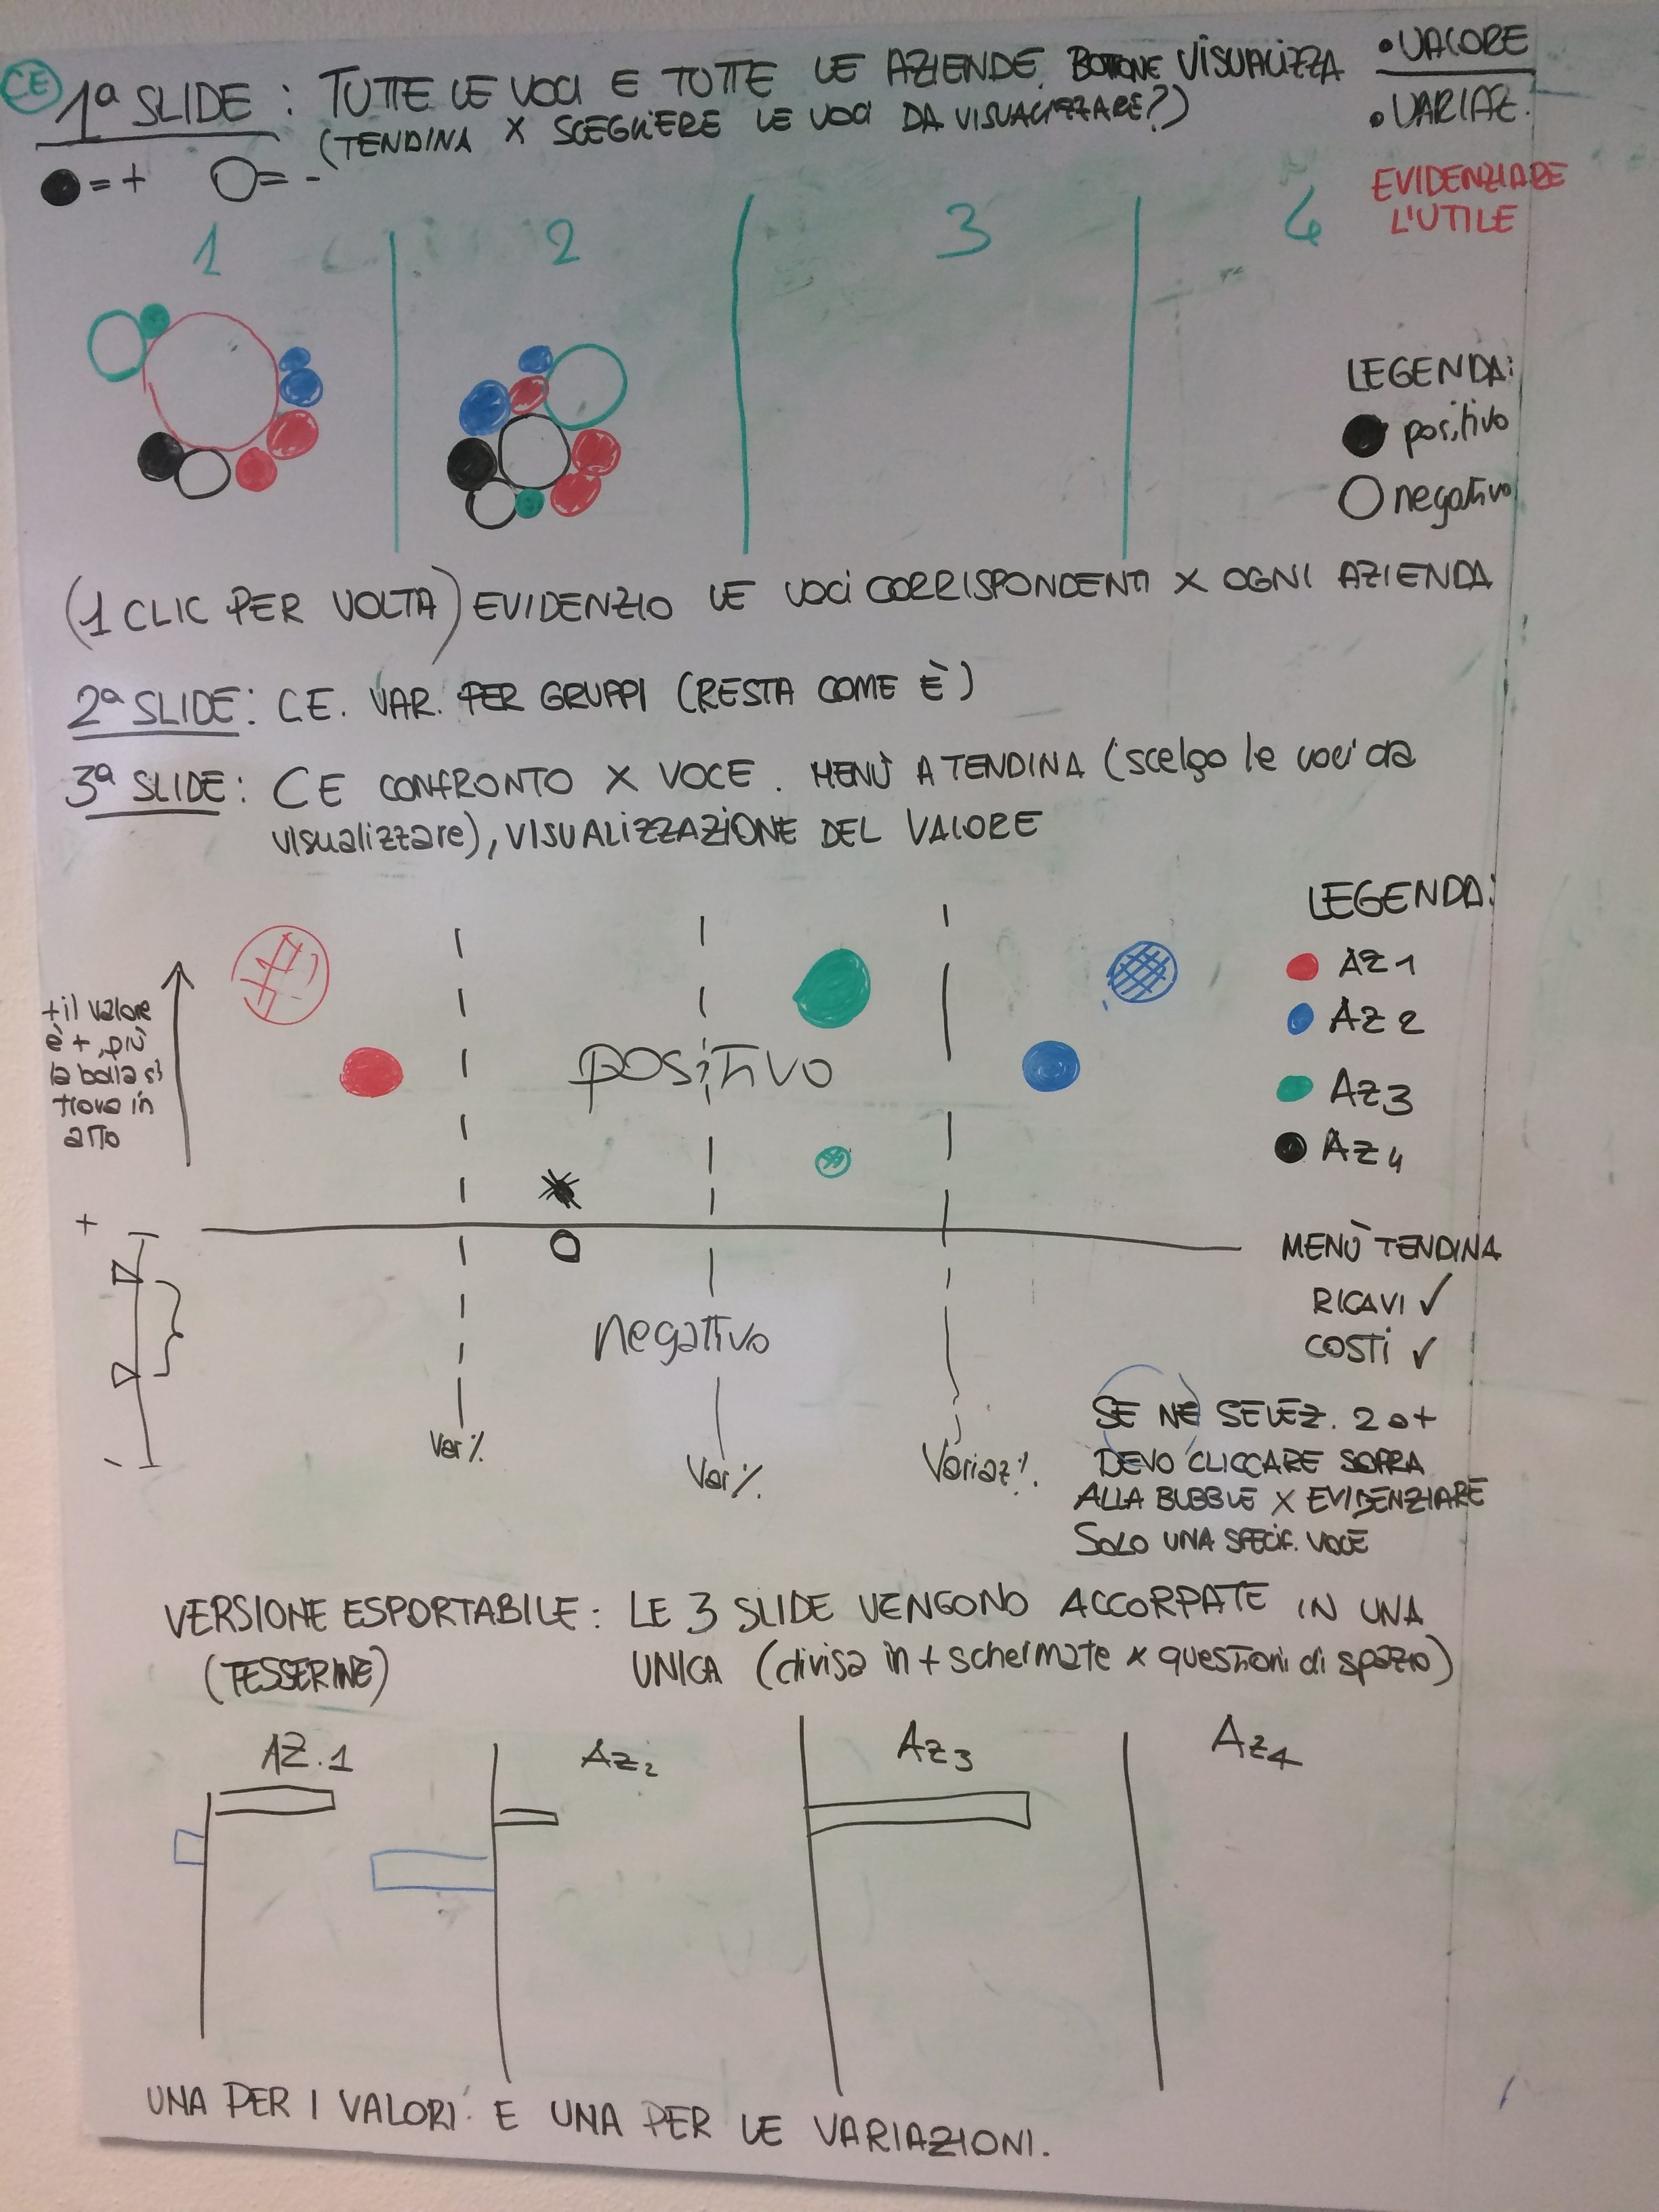 CE
1ª SLIDE: TUTTE LE VOCI E TUTTE LE AZIENDE. BOTTONE VISUALIZZA
• VALORE
• VARIAZ.
(TENDINA X SCEGLIERE LE VOCI DA VISUALIZZARE?)
= + = -
EVIDENZIARE
L'UTILE
1 2 3 4
LEGENDA:
positivo
negativo
(1 CLIC PER VOLTA) EVIDENZIO LE VOCI CORRISPONDENTI X OGNI AZIENDA
2ª SLIDE: C.E. VAR. PER GRUPPI (RESTA COME È)
3ª SLIDE: CE CONFRONTO X VOCE. MENÙ A TENDINA (scelgo le voci da
visualizzare), VISUALIZZAZIONE DEL VALORE
LEGENDA:
AZ 1
AZ 2
AZ 3
AZ 4
+ il valore
è +, più
la bolla si
trova in
alto
positivo
+
-
negativo
MENÙ TENDINA
RICAVI ✓
COSTI ✓
Var %
Var %
Variaz %.
SE NE SELEZ. 2 o +
DEVO CLICCARE SOPRA
ALLA BUBBLE X EVIDENZIARE
SOLO UNA SPECIF. VOCE
VERSIONE ESPORTABILE: LE 3 SLIDE VENGONO ACCORPATE IN UNA
(TESSERINE) UNICA (divisa in + schermate x questioni di spazio)
AZ.1 AZ2 AZ3 AZ4
UNA PER I VALORI E UNA PER LE VARIAZIONI.